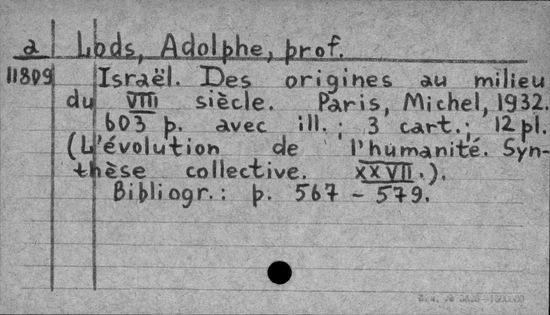 a Lods, Adolphe, prof.
11809 Israël. Des origines au milieu
du VIII siècle. Paris, Michel, 1932.
603 p. avec ill.; 3 cart.; 12 pl.
(L'évolution de l'humanité. Syn-
thèse collective. XXVII.).
Bibliogr.: p. 567 - 579.